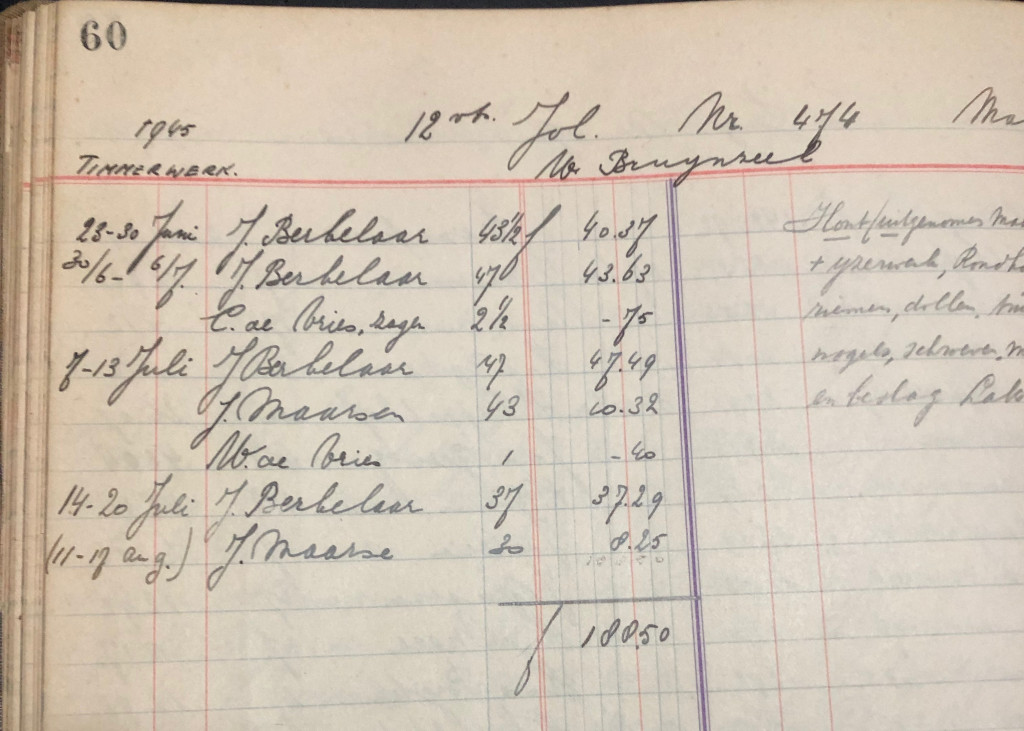 60
1945 12 vts. Jol. Nr. 474 Ma
TIMMERWERK. W. Bruynzeel
23-30 Juni J. Berbelaar 43½ f 40.37
30/6- 6/7. J. Berbelaar 47 43.63
C. de Vries, zager 2½ - 75
7-13 Juli J. Berbelaar 47 47.49
J. Maarsen 43 10.32
W. de Vries 1 - 40
14-20 Juli J. Berbelaar 37 37.29
(11-17 aug.) J. Maarse 30 8.25
f 188.50
Hout/uitgenomen
+ yzerwerk,
riemen, dollen,
nagels, schroeven,
en beslag